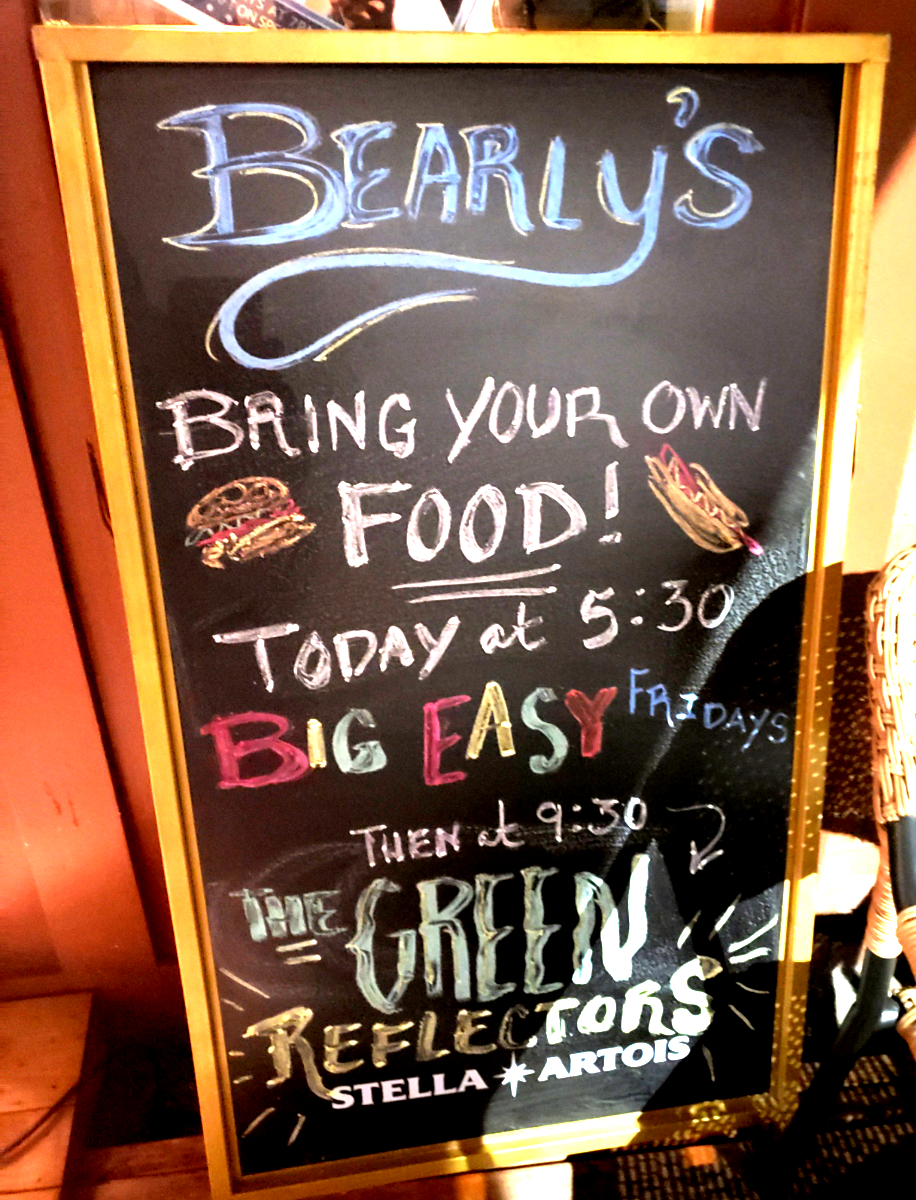 ON SP
BEARLY'S
BRING YOUR OWN
FOOD!
TODAY at 5:30
BIG EASY FRIDAYS
THEN at 9:30
THE GREEN
REFLECTORS
STELLA ARTOIS